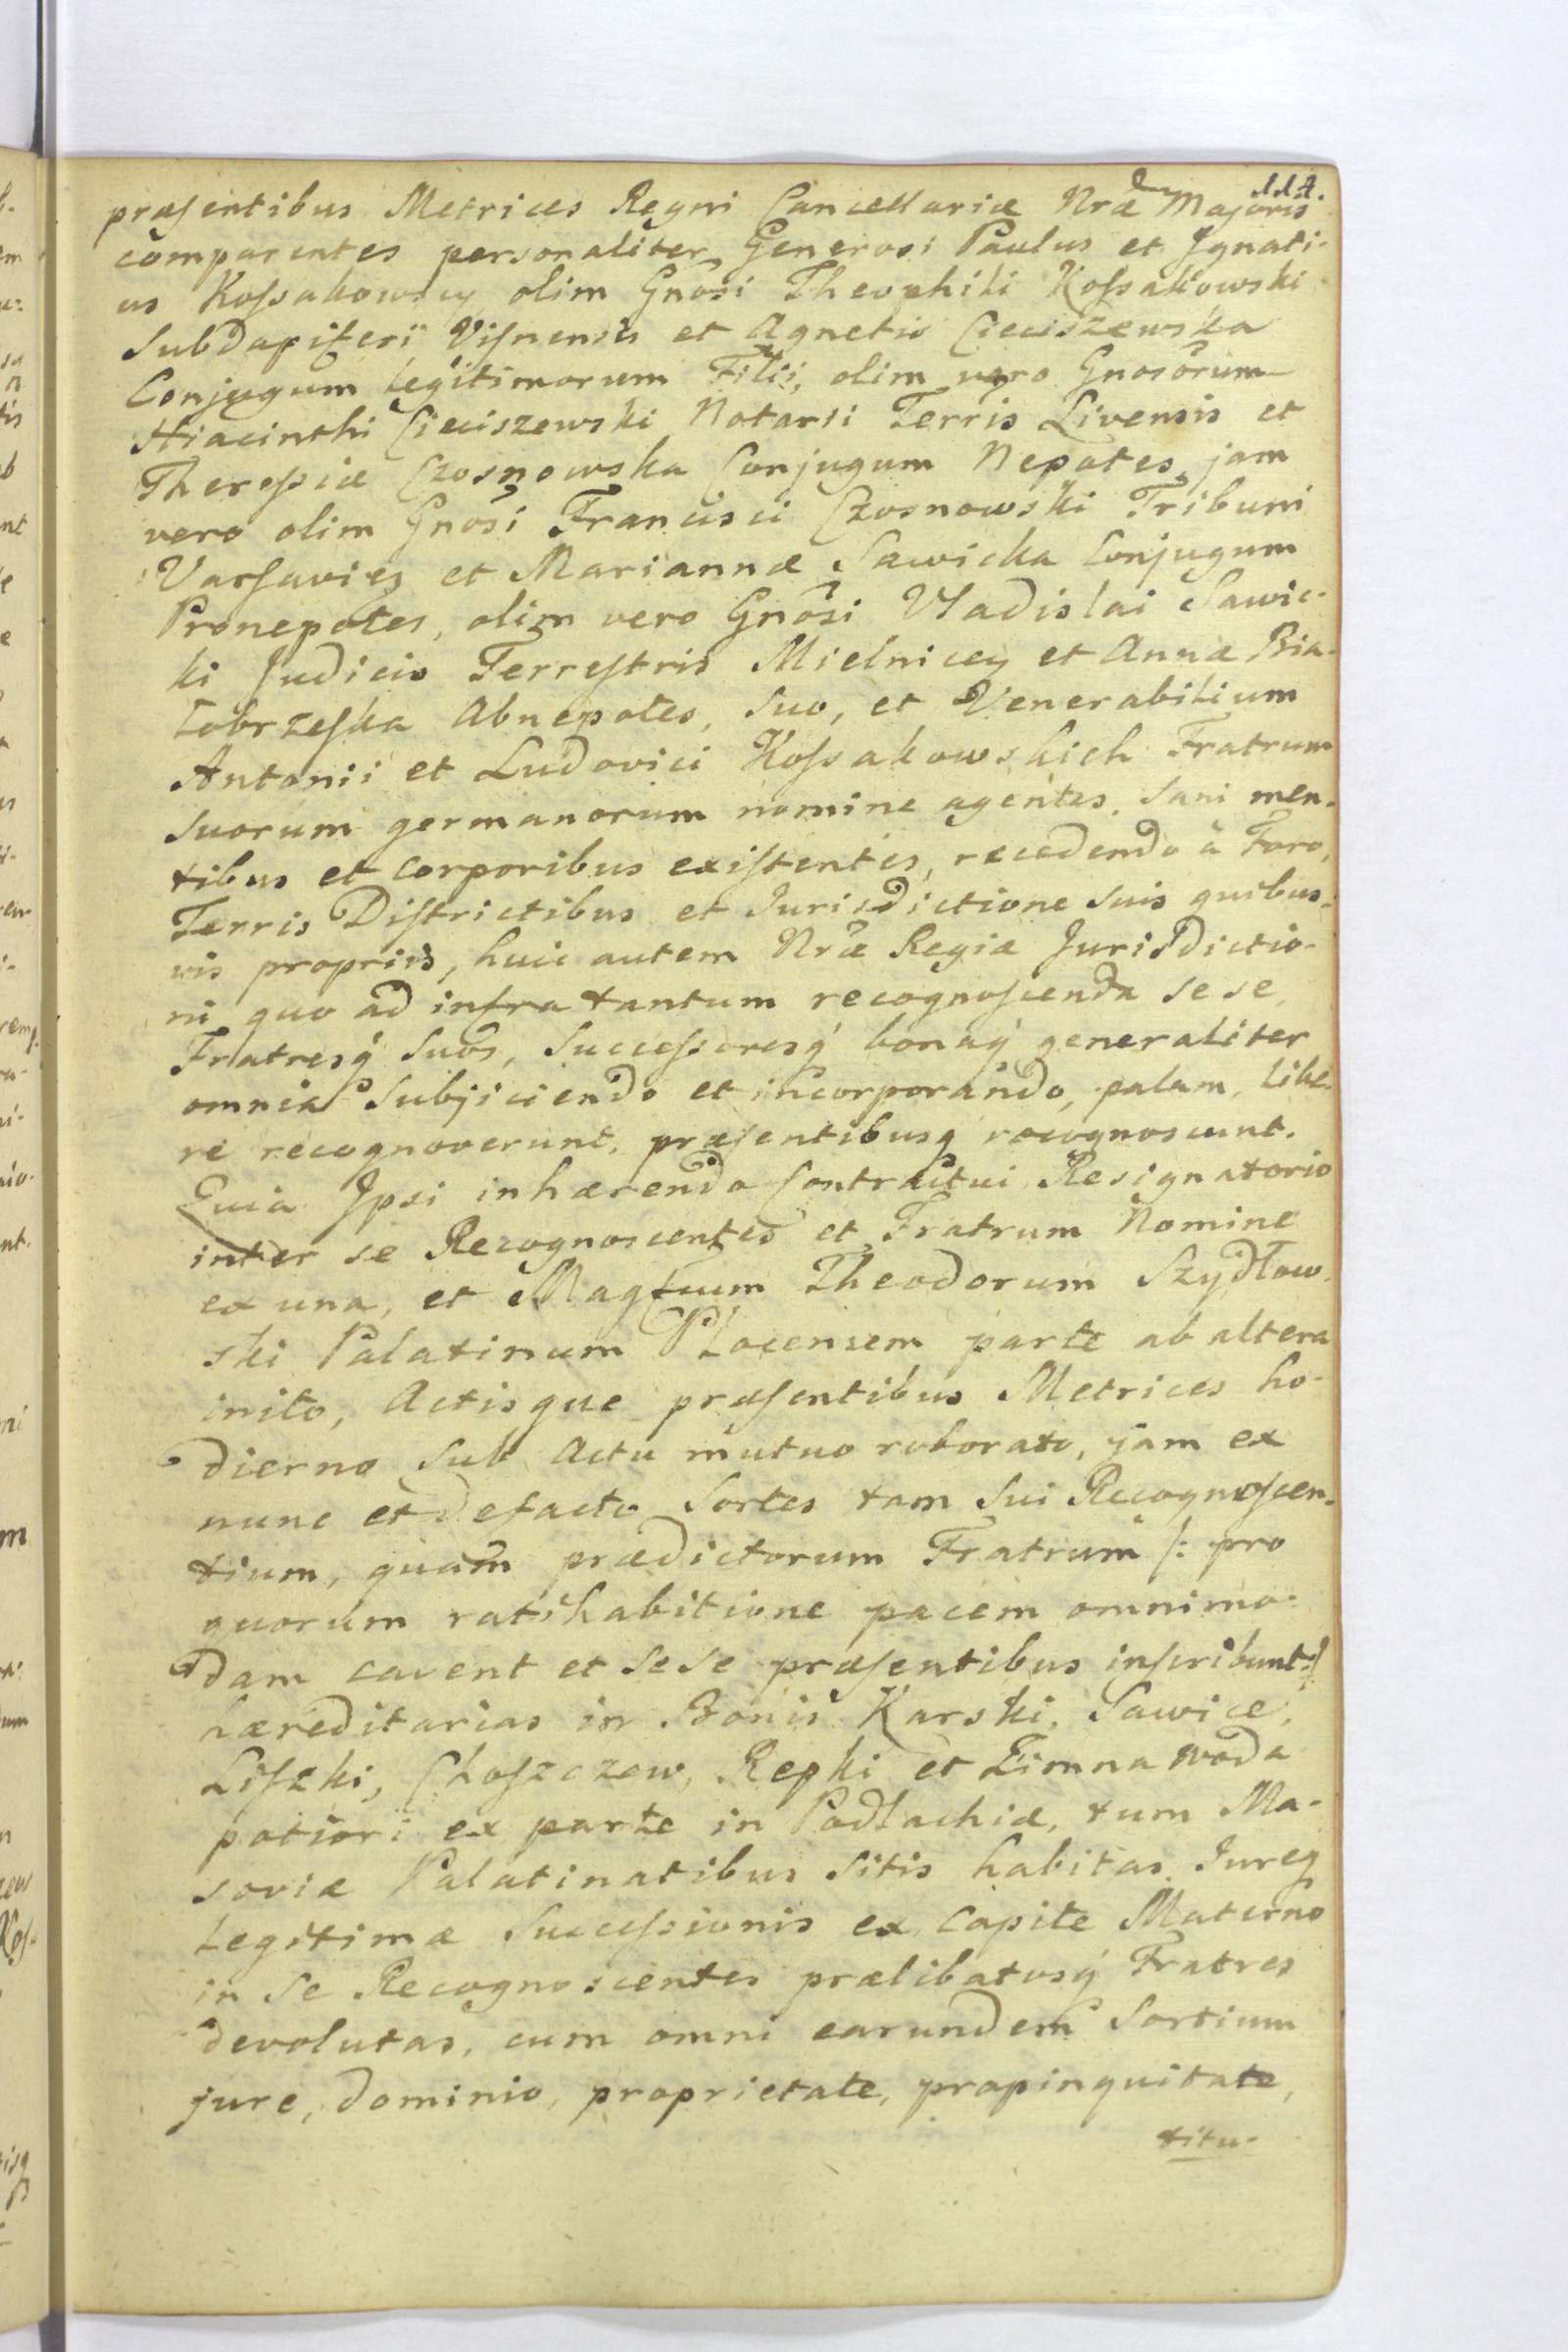 114.
præsentibus Metrices Regni Cancellariæ Nræ Majoris
comparentes personaliter Generosi Paulus et Ignati-
us Kossakowscy olim Gnosi Theophili Kossakowski
Subdapiferi Visnensis et Agnetis Cieciszewska
Conjugum legitimorum Filii, olim vero Gnosorum
Hiacinthi Cieciszewski Notarii Terris Livensis et
Theressiæ Czosnowska Conjugum Nepotes, jam
vero olim Gnosi Francisci Czosnowski Tribuni
Varsavien et Mariannæ Sawicka Conjugum
Pronepotes, olim vero Gnosi Vladislai Sawic-
ki Judicis Terrestris Mielnicen et Annæ Bia-
łobrzeska Abnepotes, suo, et Venerabilium
Antonii et Ludovici Kossakowskich Fratrum
suorum germanorum nomine agentes, sani men-
tibus et corporibus existentes, recedendo à Foro,
Terris Districtibus et Jurisdictione suis quibus-
vis propriis, huic autem Nræ Regiæ Jurisdictio-
ni quo ad infra tantum recognoscenda sese,
Fratresq suos, Successoresq bonaq generaliter
omnia subjiciendo et incorporando, palam, libe-
re recognoverunt, præsentibusq recognoscunt.
Quia Ipsi inhærendo Contractui Resignatorio
inter se Recognoscentes et Fratrum Nomine
ex una, et Magficum Theodorum Szydłow-
ski Palatinum Plocensem parte ab altera
inito, Actisque præsentibus Metrices ho-
dierno sub Actu mutuo roborato, jam ex
nunc et defacto Sortes tam sui Recognoscen-
tium, quam prædictorum Fratrum /: pro
quorum ratihabitione pacem omnimo-
dam cavent et sese præsentibus inscribunt :/
hæreditarias in Bonis Karski, Sawice,
Liszki, Choszczew, Repki et Zimna woda
potiori ex parte in Podlachiæ, tum Ma-
soviæ Palatinatibus sitis habitas, Jureq
legitimæ Successionis ex Capite Materno
in se Recognoscentes prælibatosq Fratres
devolutas, cum omni earundem Sortium
jure, dominio, proprietate, propinquitate,
titu-